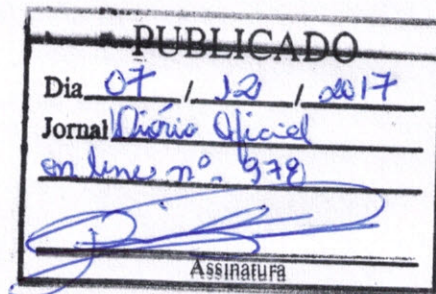 PUBLICADO
Dia 07 / 12 / 2017
Jornal Diário Oficial
on line nº. 978
Assinatura